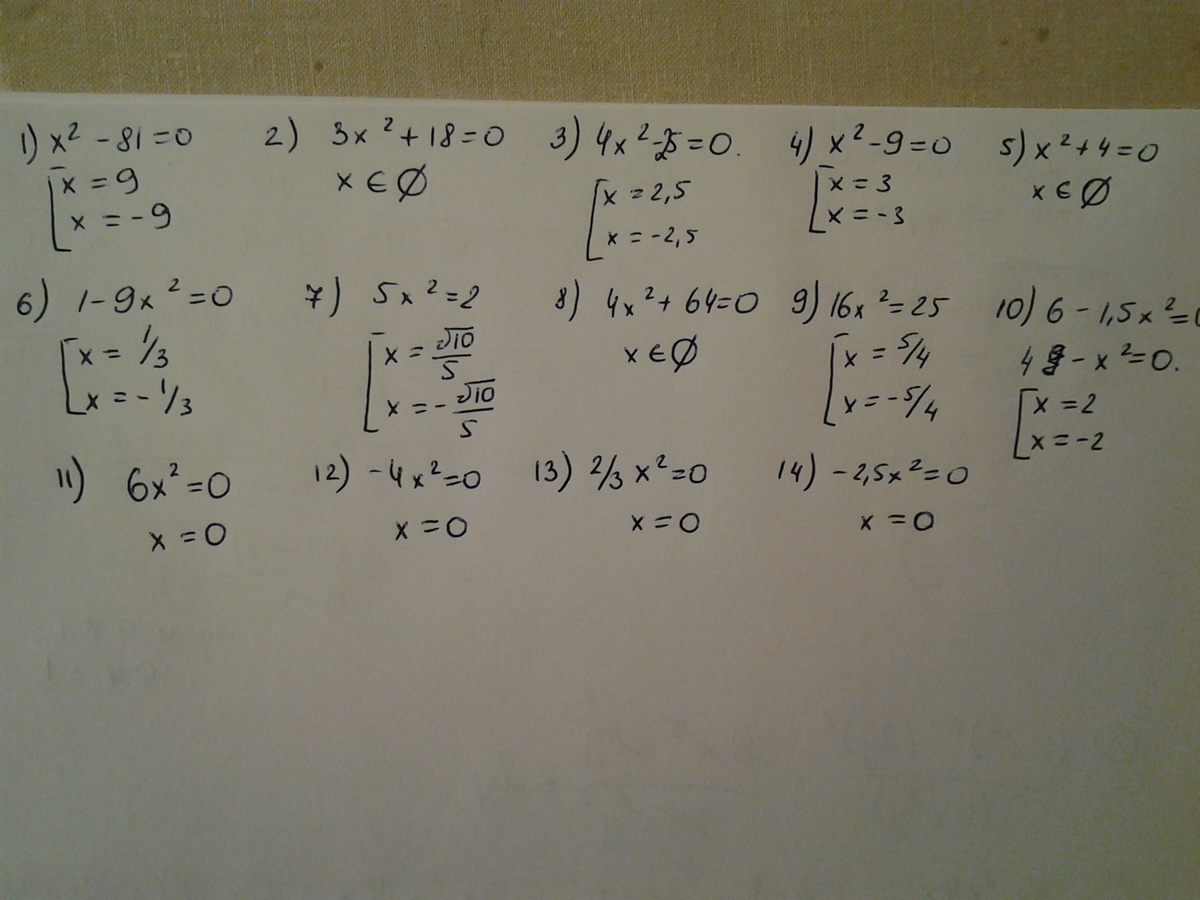 1) x² - 81 = 0
[x = 9
x = -9
2) 3x² + 18 = 0
x ∈ ∅
3) 4x² - 25 = 0.
[x = 2,5
x = -2,5
4) x² - 9 = 0
[x = 3
x = -3
5) x² + 4 = 0
x ∈ ∅
6) 1 - 9x² = 0
[x = 1/3
x = -1/3
7) 5x² = 2
[x = √10/5
x = -√10/5
8) 4x² + 64 = 0
x ∈ ∅
9) 16x² = 25
[x = 5/4
x = -5/4
10) 6 - 1,5x² = 0
4 - x² = 0.
[x = 2
x = -2
11) 6x² = 0
x = 0
12) -4x² = 0
x = 0
13) 2/3 x² = 0
x = 0
14) -2,5x² = 0
x = 0